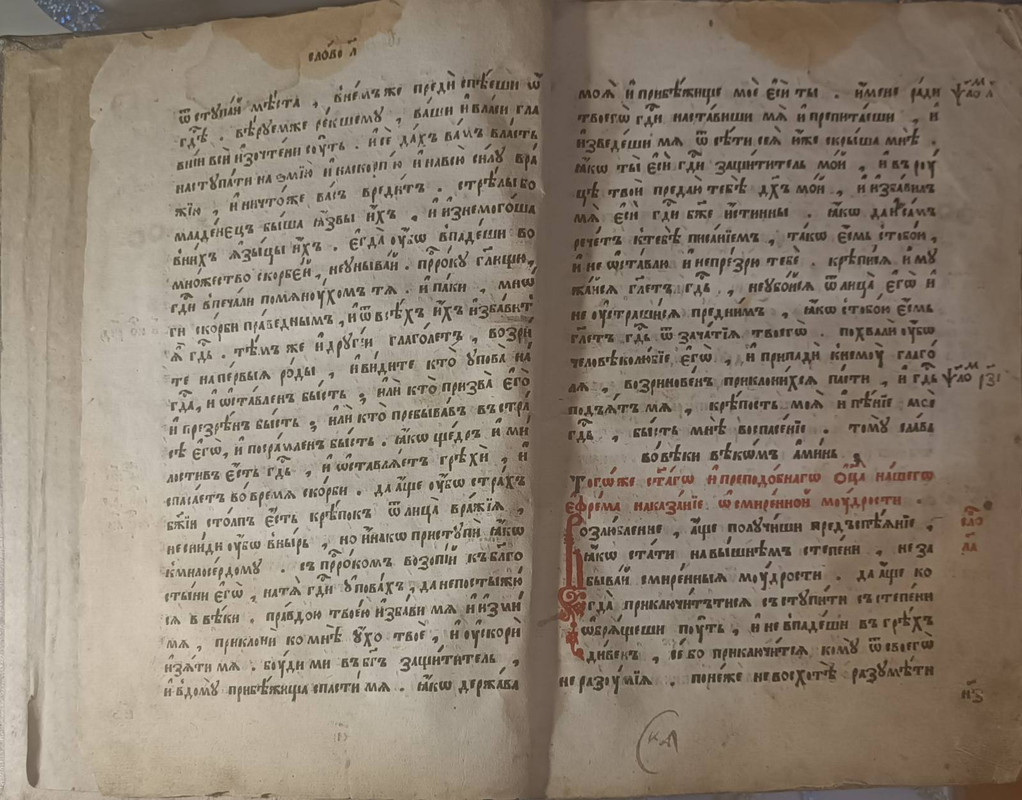 сло́во л҃
ѿступа́й мѣ́ста , внемъ́же предѝ спѣ́еши ѿ
гдѣ̀ . вѣ́руемже ре́кшему , ва́ши и҆ власи гла
вні́и всѝ и҆зочте́ни сꙋ́ть . и҆ сѐ да́хъ ва́мъ вла́сть
наступа́ти на ѕмію̀ и҆ наскорпі́ю и҆ навсю̀ си́лу вра́
жїю , и҆ ничто́же ва́съ вреди́тъ . стрѣ́лы бо
младе́нецъ бы́ша ꙗ҆́звы и҆́хъ , и҆ и҆знемого́ша
внихъ ꙗ҆зы́цы и҆́хъ . є҆гда̀ оу҆́бѡ впаде́ши во
мно́жество скорбе́й , неуныва́й . прⷪ҇ро́ку гл҃ющю ,
гдⷭ҇и впеча́ли помянꙋ́хомъ тя . и҆ па́ки , мнѡ́
ги ско́рби пра́веднымъ , и҆ ѿ всѣ́хъ и҆́хъ и҆зба́витъ
ꙗ҆̀ гдⷭ҇ь . тѣ́мъ же и҆ дру́гїи глаго́летъ , возри́
те на пе́рвыя ро́ды , и҆ ви́дите кто̀ упова̀ на̀
гдⷭ҇а , и҆ ѡ҆ста́вленъ бы́сть , и҆лѝ кто призва̀ є҆го̀
и҆ презрѣ́нъ бы́сть , и҆лѝ кто пребыва́въ въ стра́
сѣ є҆гѡ̀ , и҆ посра́мленъ бы́сть . ꙗ҆́кѡ ще́дръ и҆ ми́
лостивъ є҆́сть гдⷭ҇ь , и҆ ѡ҆ставля́етъ грѣхѝ , и҆
спаса́етъ во вре́мя ско́рби . да а҆́ще оу҆́бѡ стра́хъ
бж҃їи сто́лпъ є҆́сть крѣ́покъ ѿ лица̀ вра́жїя ,
несни́ди оу҆́бѡ вны́рь , но и҆на́кѡ приступѝ ꙗ҆́кѡ
кмилосе́рдому . съ прⷪ҇ро́комъ возопі́й къ бл҃го
сты́ни є҆гѡ̀ , на тя̀ гдⷭ҇и упова́хъ , да непостыжю̀
ся в вѣ́ки . пра́вдою твое́ю и҆зба́ви мя и҆ и҆зми́
мя , приклонѝ ко мнѣ̀ у҆́хо твоѐ , и҆ оу҆скорѝ
и҆зя́ти мя . бꙋ́ди ми въ бг҃ъ защи́титель ,
и҆ вдо́му прибѣ́жища спасти́ мя . ꙗ҆́кѡ держа́ва
моя̀ и҆ прибѣ́жище моѐ є҆сѝ ты̀ . и҆́мене ра́ди
твоегѡ̀ гдⷭ҇и наста́виши мя̀ и҆ препита́еши , и҆
и҆зведе́ши мя ѿ сѣ́ти сея̀ и҆́же скры́ша мнѣ̀ .
ꙗ҆́кѡ ты̀ є҆сѝ гдⷭ҇и защи́титель мо́й , и҆ в рꙋ́
цѣ̀ твоѝ преда́ю тебѣ̀ дх҃ъ мо́й , и҆ и҆зба́вилъ
мя̀ є҆сѝ гдⷭ҇и бж҃е и҆́стинны . ꙗ҆́кѡ да и҆ са́мъ
рече́тъ ктебѣ̀ писа́нїемъ , та́кѡ є҆́смь стобо́ю ,
и҆ не ѡ҆ста́влю и҆ непре́зрю тебѐ . крѣпи́ся и҆ му
жа́йся гл҃етъ гдⷭ҇ь , неубо́йся ѿ лица̀ є҆гѡ̀ и҆
не оу҆страши́ся пред̾ни́мъ , ꙗ҆́кѡ стобо́ю є҆́смь
гл҃етъ гдⷭ҇ь ѿ зача́тїя твоегѡ̀ . похва́ли оу҆́бѡ
человѣколю́бїе є҆гѡ̀ , и҆ припадѝ кнемꙋ̀ глаго́
ля , возринове́нъ приклони́хся па́сти , и҆ гдⷭ҇ь
подъя́тъ мя , крѣ́пость моя̀ и҆ пѣ́нїе моѐ
гдⷭ҇ь , бы́сть мнѣ̀ воспасе́нїе . тому̀ сла́ва
во вѣ́ки вѣкѡ́мъ а҆ми́нь .
Тогѡ́же ст҃а́гѡ и҆ преподо́бнагѡ ѻ҆ц҃а̀ на́шегѡ
є҆фре́ма наказа́нїе ѡ҆ смире́ннои мꙋ́дрости .
Возлю́бленне , а҆́ще полу́чиши предъспѣ́янїе ,
ꙗ҆́кѡ ста́ти на вы́шнѣмъ степе́ни , не за
быва́й смире́нныя мꙋ́дрости . да а҆́ще ко
гда̀ приключи́тътися съступи́ти съ степени
ѡ҆бря́щеши пꙋ́ть , и҆ не впаде́ши въ грѣ́хъ
ди́венъ , се́ бо приключи́тся кому̀ ѿ своегѡ̀
не разꙋ́мїя . поне́же не восхотѣ̀ разумѣ́ти
ѱало́м л҃
ѱало́м рз҃і
сло́ л҃а
из̾